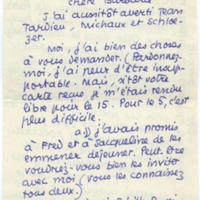 Chère Barbara
J'ai aussitôt averti Jean
Tardieu, Michaux et Schloe-
zer.
Moi, j'ai bien des choses
à vous demander. (Pardonnez-
moi, j'ai peur d'être insup-
portable. Mais, sitôt votre
carte reçue je m'étais rendu
libre pour le 15. Pour le 5, c'est
plus difficile.
a)) j'avais promis
à Fred et à Jacqueline de les
emmener déjeuner. Peut-être
voudrez-vous bien les inviter
avec moi (vous les connaissez
tous deux)